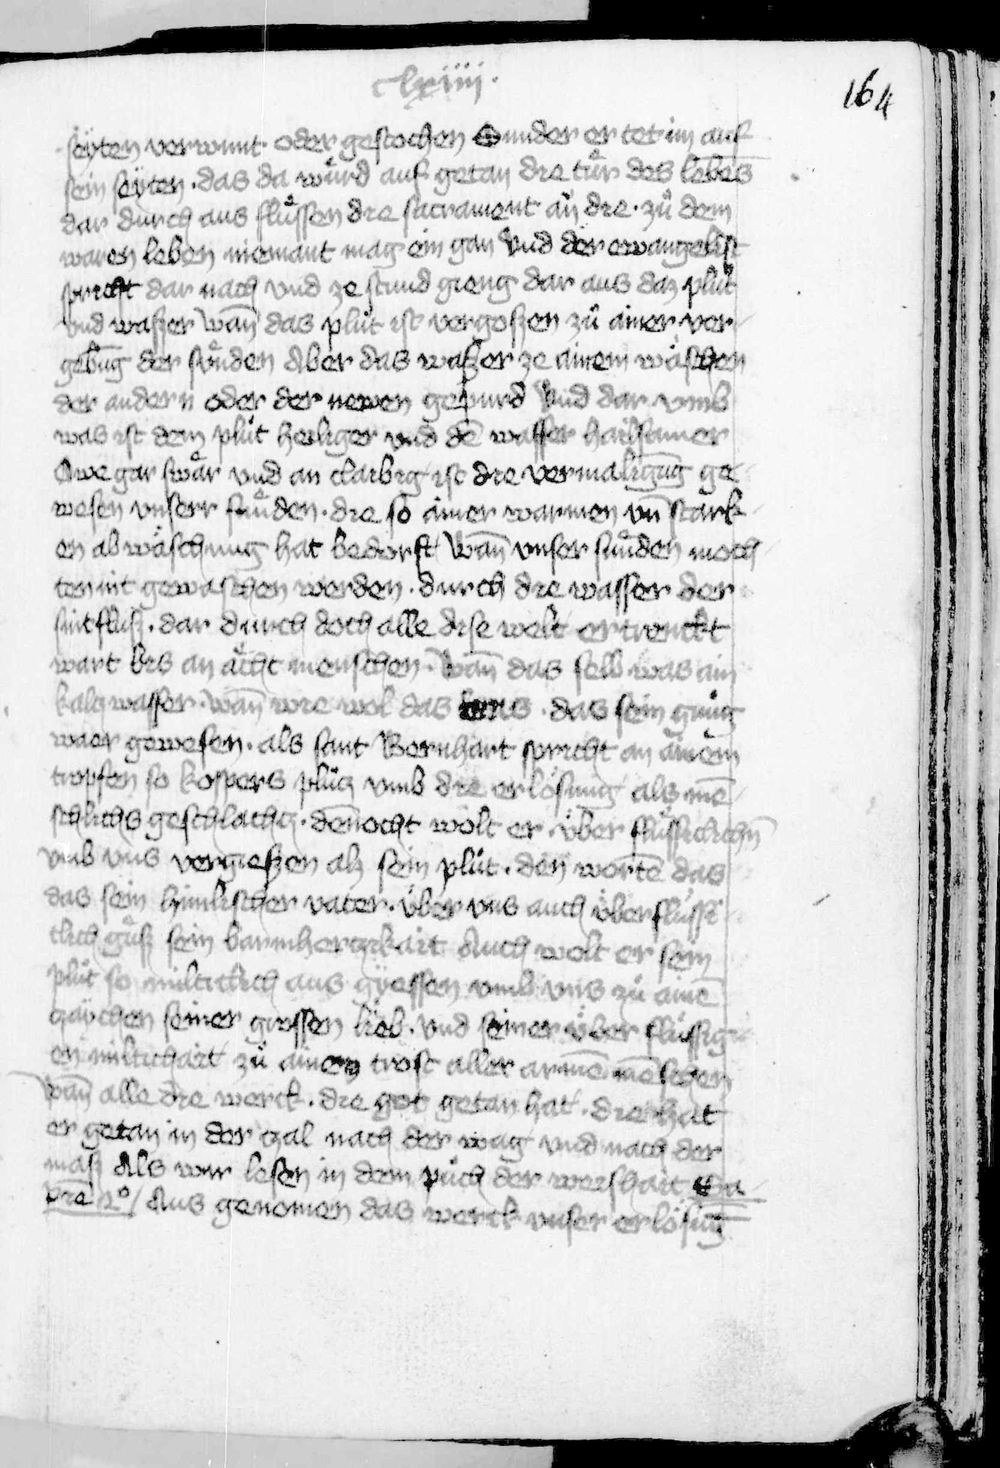 clxiiii.
164
seyten verwunt. oder gestochen Sunder er tet im auf
sein seyten. das da wuͤrd auf getan die tuͤr des lebēs
dar durch aus fluͤssen die sacrament añ die. zuͦ dem
waren leben niemant mag ein gan Vnd der ewangelist
spricht dar nach vnd ze stund gieng dar aus daz pluͦt
vnd waszer Wañ das pluͦt ist vergoszen zuͦ ainer ver
gebūg der suͤnden Aber das waszer ze ainem wäschen
der andern oder der newen gepurd Vnd dar vmb
was ist dem pluͦt heiliger vnd dē wasser hailsamer
Owe gar swär vnd an clაibig ist die vermaligūg ge
wesen vnserr suͤnden. die so ainer warmen vñ stark
en abwäschung hat bedorft Wañ vnser suͤnden moch
ten nit gewaschen werden. durch die wasser der
sintflusz. dar durch doch alle dise welt ertrenckt
wart bis an ächt menschen. Wañ das selb was ain
kalcz wasser. Wañ wie wol das was. das sein gnuͦg
waer gewesen. als sant Bernhart spricht an ainem
tropfen so kospers pluͦcz vmb die erlösung als mē
schlichs geschlächcz. deñocht wolt er. über flüssiclichñ
vmb vns vergieszen alz sein pluͦt. den wortē das
das sein himlischer vater. über vns auch überflüssi
clich guͤsz sein barmherczikait Auch wolt er sein
pluͦt so milticlich aus gyessen vmb vns zuͦ ainē
zaychen seiner grossen lieb. vnd seiner über flüssig
en miltichait zuͦ ainem trost aller armē mēschen
Wañ alle die werck. die got getan hat. die hat
er getan in der zal nach der wag vnd nach der
masz Als wir lesen in dem puͦch der weishait Sa
pie 2º / Aus genomen das werck vnser erlösūg